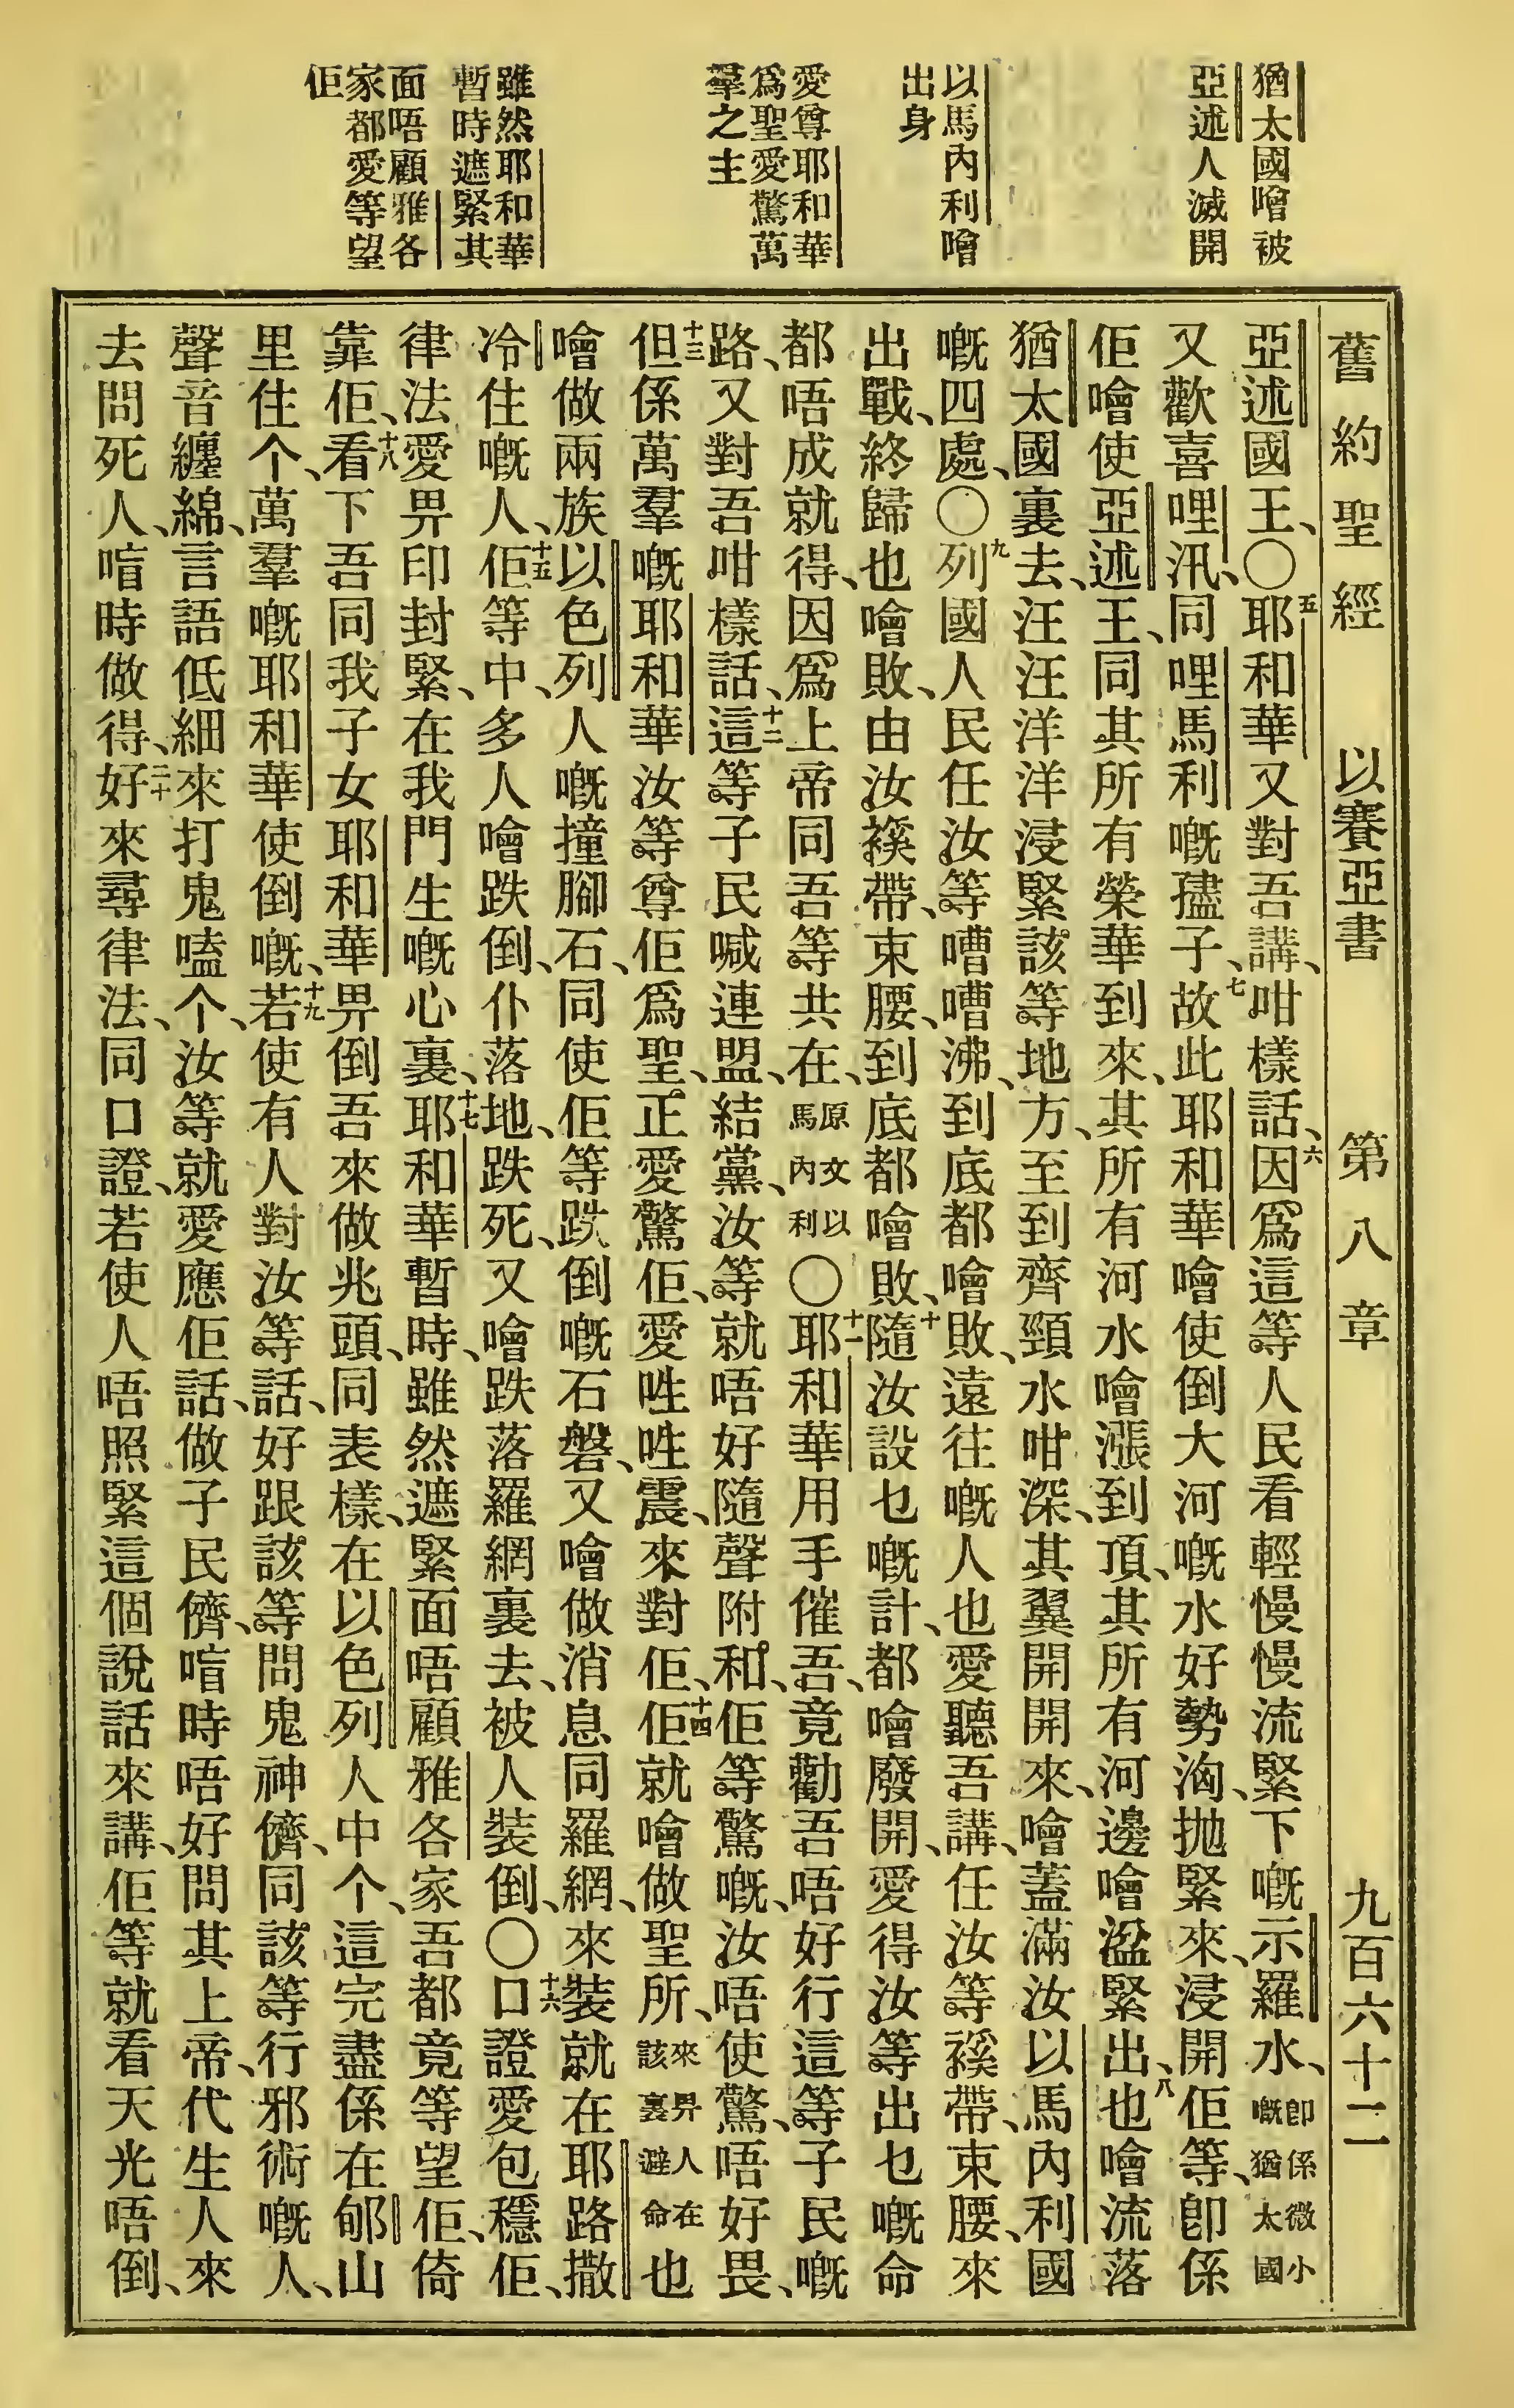 猶太國噲被
亞述人滅開
以馬內利噲
出身
愛尊耶和華
爲聖愛驚萬
羣之主
雖然耶和華
暫時遮緊其
面唔顧雅各
家都愛等望
佢
舊約聖經 以賽亞書 第八章 九百六十二
亞述國王、〇五耶和華又對吾講、咁樣話、六因爲這等人民看輕慢慢流緊下嘅示羅水、卽係微小嘅猶太國
又歡喜哩汛、同哩馬利嘅孻子、七故此耶和華噲使倒大河嘅水好勢洶、拋緊來、浸開佢等、卽係
佢噲使亞述王、同其所有榮華到來、其所有河水噲漲到頂、其所有河邊噲溢緊出、八也噲流落
猶太國裏去、汪汪洋洋浸緊該等地方、至到齊頸水咁深、其翼開開來、噲蓋滿汝以馬內利國
嘅四處、〇九列國人民任汝等嘈嘈沸、到底都噲敗、遠往嘅人也愛聽吾講、任汝等襘帶、束腰、來
出戰、終歸也噲敗、由汝襘帶、束腰、到底都噲敗、十隨汝設乜嘅計、都噲廢開、愛得汝等出乜嘅命
都唔成就得、因爲上帝同吾等共在、原文以馬內利〇十一耶和華用手催吾、竟勸吾唔好行這等子民嘅
路、又對吾咁樣話、十二這等子民喊連盟、結黨、汝等就唔好隨聲附和、佢等驚嘅、汝唔使驚、唔好畏、
十三但係萬羣嘅耶和華汝等尊佢爲聖、正愛驚佢、愛𠱁𠱁震、來對佢、十四佢就噲做聖所、來畀人在該裏避命也
噲做兩族以色列人嘅撞腳石、同使佢等跌倒嘅石磐、又噲做消息同羅網、來裝就在耶路撒
冷住嘅人、十五佢等中、多人噲跌倒、仆落地、跌死、又噲跌落羅網裏去、被人裝倒、〇十六口證愛包穩佢、
律法愛畀印封緊、在我門生嘅心裏、十七耶和華暫時、雖然遮緊面唔顧雅各家吾都竟等望佢、倚
靠佢、十八看下吾同我子女耶和華畀倒吾來做兆頭、同表樣、在以色列人中个、這完盡係在郇山
里住个、萬羣嘅耶和華使倒嘅、十九若使有人對汝等話、好跟該等問鬼神儕、同該等行邪術嘅人、
聲音纏綿、言語低細來打鬼嗑个、汝等就愛應佢話、做子民儕、喑時唔好問其上帝、代生人來
去問死人、喑時做得、二十好來尋律法、同口證、若使人唔照緊這個說話來講、佢等就看天光唔倒、